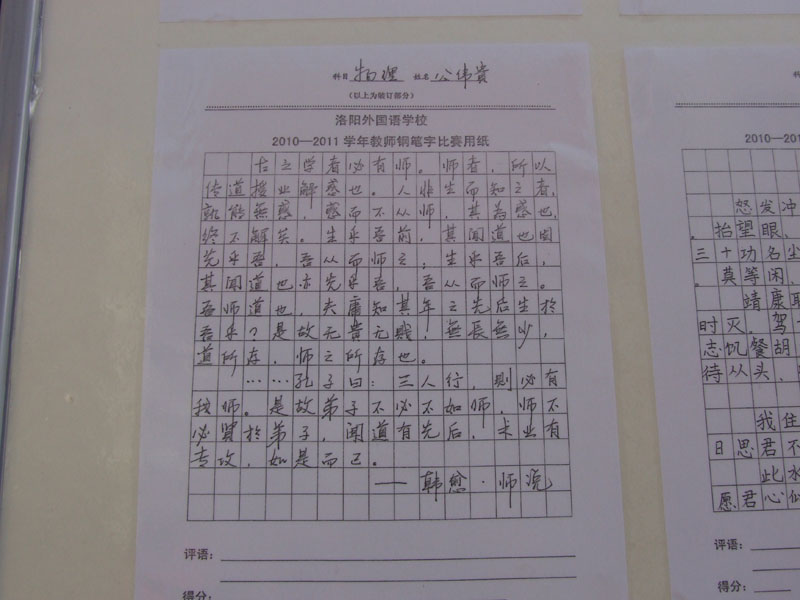 科目 物理 姓名 公伟贵
（以上为装订部分）
洛阳外国语学校
2010—2011 学年教师钢笔字比赛用纸
古之学者必有师。师者，所以
传道授业解惑也。人非生而知之者，
孰能無惑，惑而不从师，其為惑也，
终不解矣。生乎吾前，其闻道也固
先乎吾，吾从而师之；生乎吾后，
其闻道也亦先乎吾，吾从而师之。
吾师道也，夫庸知其年之先后生於
吾乎？是故无貴无贱，無長無少，
道所存，师之所存也。
……孔子曰：三人行，则必有
我师。是故弟子不必不如师，师不
必贤於弟子，闻道有先后，术业有
专攻，如是而已。
——韩愈·师说
评语：
得分：
2010—201
怒发冲
抬望眼、
三十功名尘
莫等闲、
靖康耻
时灭。驾
志饥餐胡
待从头、
我住
日思君不
此水
愿君心似
评语：
得分：